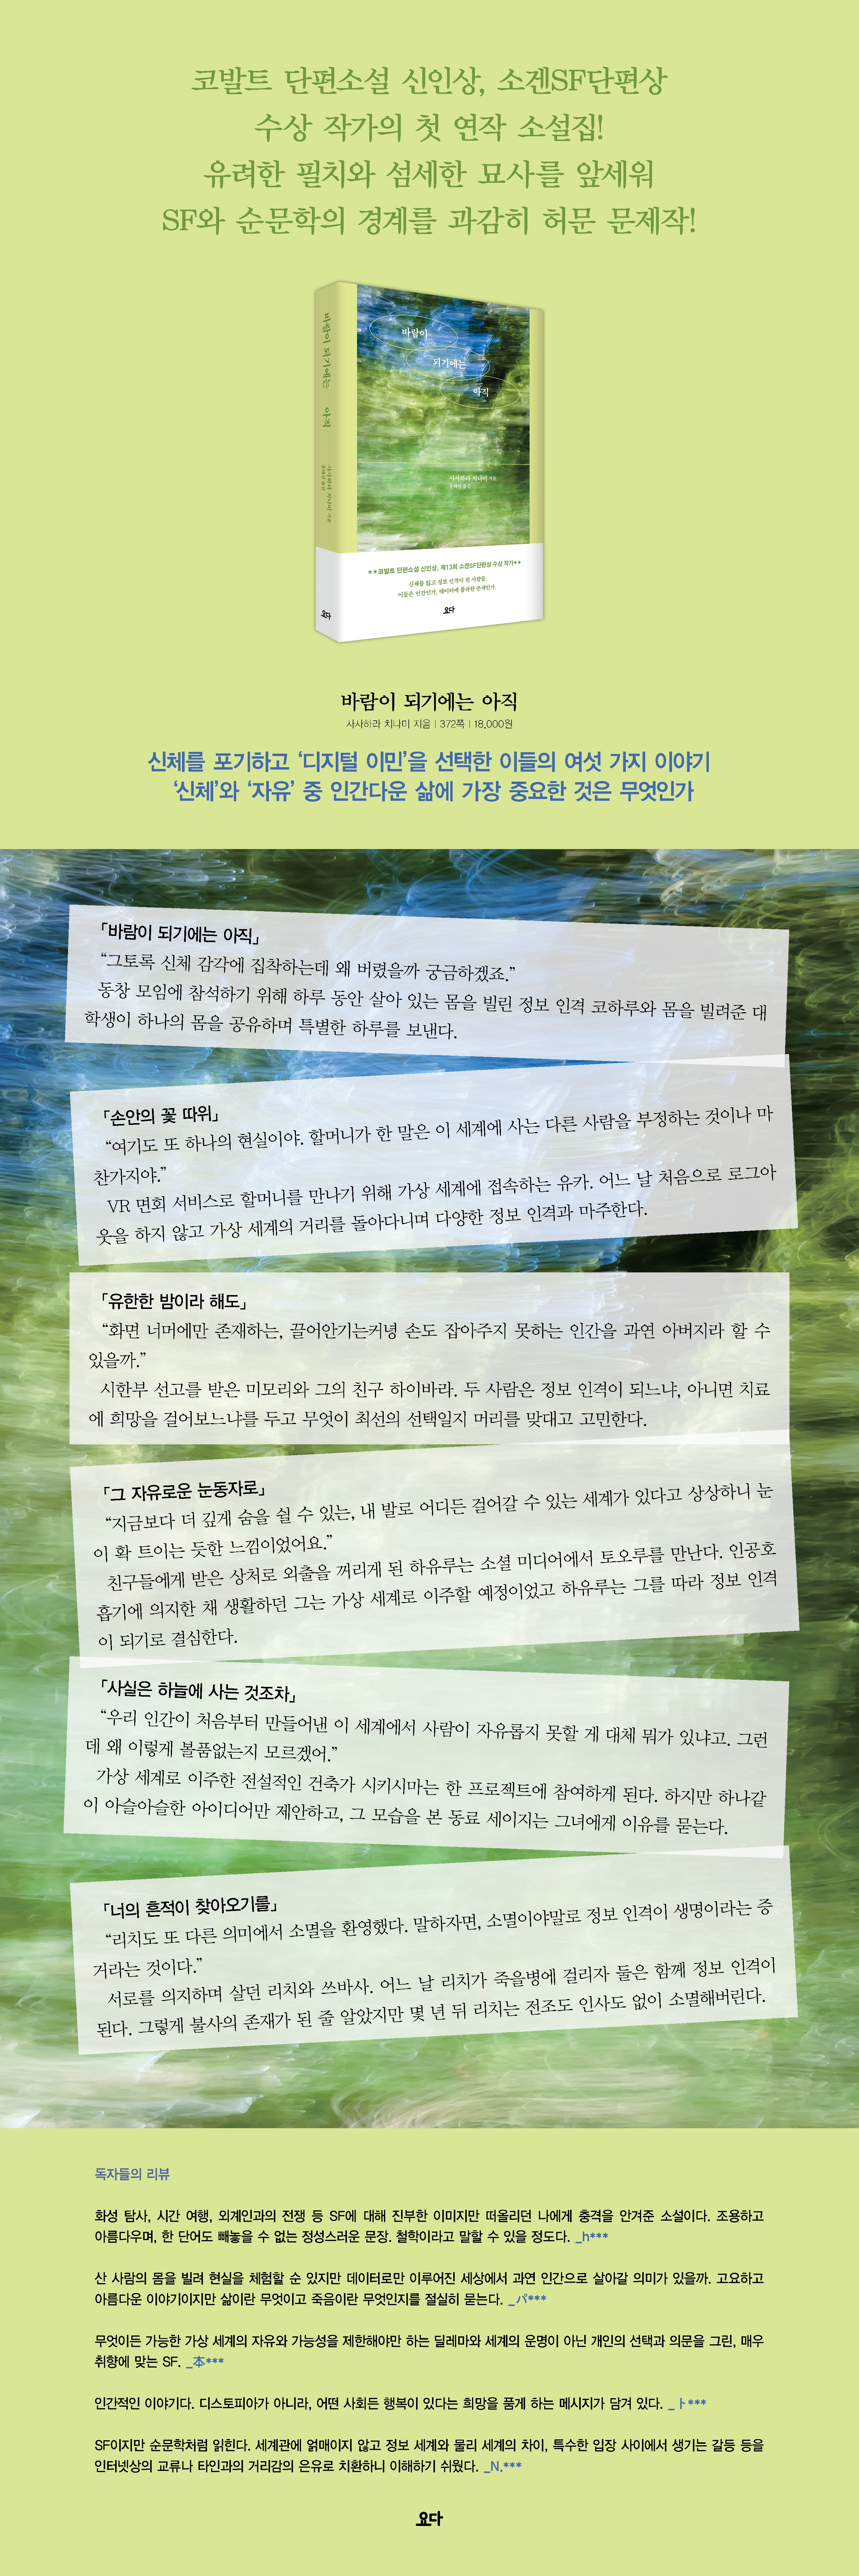 코발트 단편소설 신인상, 소겐SF단편상
수상 작가의 첫 연작 소설집!
유려한 필치와 섬세한 묘사를 앞세워
SF와 순문학의 경계를 과감히 허문 문제작!
바람이 되기에는 아직
바람이
되기에는
아직
사사하라 치나미 지음
**코발트 단편소설 신인상, 제13회 소겐SF단편상 수상 작가**
신체를 잃고 정보 인격이 된 사람들.
이들은 인간인가, 데이터에 불과한 존재인가.
요다
요다
바람이 되기에는 아직
사사하라 치나미 지음 | 372쪽 | 18,000원
신체를 포기하고 ‘디지털 이민’을 선택한 이들의 여섯 가지 이야기
‘신체’와 ‘자유’ 중 인간다운 삶에 가장 중요한 것은 무엇인가
「바람이 되기에는 아직」
“그토록 신체 감각에 집착하는데 왜 버렸을까 궁금하겠죠.”
동창 모임에 참석하기 위해 하루 동안 살아 있는 몸을 빌린 정보 인격 코하루와 몸을 빌려준 대
학생이 하나의 몸을 공유하며 특별한 하루를 보낸다.
「손안의 꽃 따위」
“여기도 또 하나의 현실이야. 할머니가 한 말은 이 세계에 사는 다른 사람을 부정하는 것이나 마
찬가지야.”
VR 면회 서비스로 할머니를 만나기 위해 가상 세계에 접속하는 유카. 어느 날 처음으로 로그아
웃을 하지 않고 가상 세계의 거리를 돌아다니며 다양한 정보 인격과 마주한다.
「유한한 밤이라 해도」
“화면 너머에만 존재하는, 끌어안기는커녕 손도 잡아주지 못하는 인간을 과연 아버지라 할 수
있을까.”
시한부 선고를 받은 미모리와 그의 친구 하이바라. 두 사람은 정보 인격이 되느냐, 아니면 치료
에 희망을 걸어보느냐를 두고 무엇이 최선의 선택일지 머리를 맞대고 고민한다.
「그 자유로운 눈동자로」
“지금보다 더 깊게 숨을 쉴 수 있는, 내 발로 어디든 걸어갈 수 있는 세계가 있다고 상상하니 눈
이 확 트이는 듯한 느낌이었어요.”
친구들에게 받은 상처로 외출을 꺼리게 된 하유루는 소셜 미디어에서 토오루를 만난다. 인공호
흡기에 의지한 채 생활하던 그는 가상 세계로 이주할 예정이었고 하유루는 그를 따라 정보 인격
이 되기로 결심한다.
「사실은 하늘에 사는 것조차」
“우리 인간이 처음부터 만들어낸 이 세계에서 사람이 자유롭지 못할 게 대체 뭐가 있냐고. 그런
데 왜 이렇게 볼품없는지 모르겠어.”
가상 세계로 이주한 전설적인 건축가 시키시마는 한 프로젝트에 참여하게 된다. 하지만 하나같
이 아슬아슬한 아이디어만 제안하고, 그 모습을 본 동료 세이지는 그녀에게 이유를 묻는다.
「너의 흔적이 찾아오기를」
“리치도 또 다른 의미에서 소멸을 환영했다. 말하자면, 소멸이야말로 정보 인격이 생명이라는 증
거라는 것이다.”
서로를 의지하며 살던 리치와 쓰바사. 어느 날 리치가 죽을병에 걸리자 둘은 함께 정보 인격이
된다. 그렇게 불사의 존재가 된 줄 알았지만 몇 년 뒤 리치는 전조도 인사도 없이 소멸해버린다.
독자들의 리뷰
화성 탐사, 시간 여행, 외계인과의 전쟁 등 SF에 대해 진부한 이미지만 떠올리던 나에게 충격을 안겨준 소설이다. 조용하고
아름다우며, 한 단어도 빼놓을 수 없는 정성스러운 문장. 철학이라고 말할 수 있을 정도다. _h***
산 사람의 몸을 빌려 현실을 체험할 순 있지만 데이터로만 이루어진 세상에서 과연 인간으로 살아갈 의미가 있을까. 고요하고
아름다운 이야기이지만 삶이란 무엇이고 죽음이란 무엇인지를 절실히 묻는다. _パ***
무엇이든 가능한 가상 세계의 자유와 가능성을 제한해야만 하는 딜레마와 세계의 운명이 아닌 개인의 선택과 의문을 그린, 매우
취향에 맞는 SF. _本***
인간적인 이야기다. 디스토피아가 아니라, 어떤 사회든 행복이 있다는 희망을 품게 하는 메시지가 담겨 있다. _ト***
SF이지만 순문학처럼 읽힌다. 세계관에 얽매이지 않고 정보 세계와 물리 세계의 차이, 특수한 입장 사이에서 생기는 갈등 등을
인터넷상의 교류나 타인과의 거리감의 은유로 치환하니 이해하기 쉬웠다. _N.***
요다